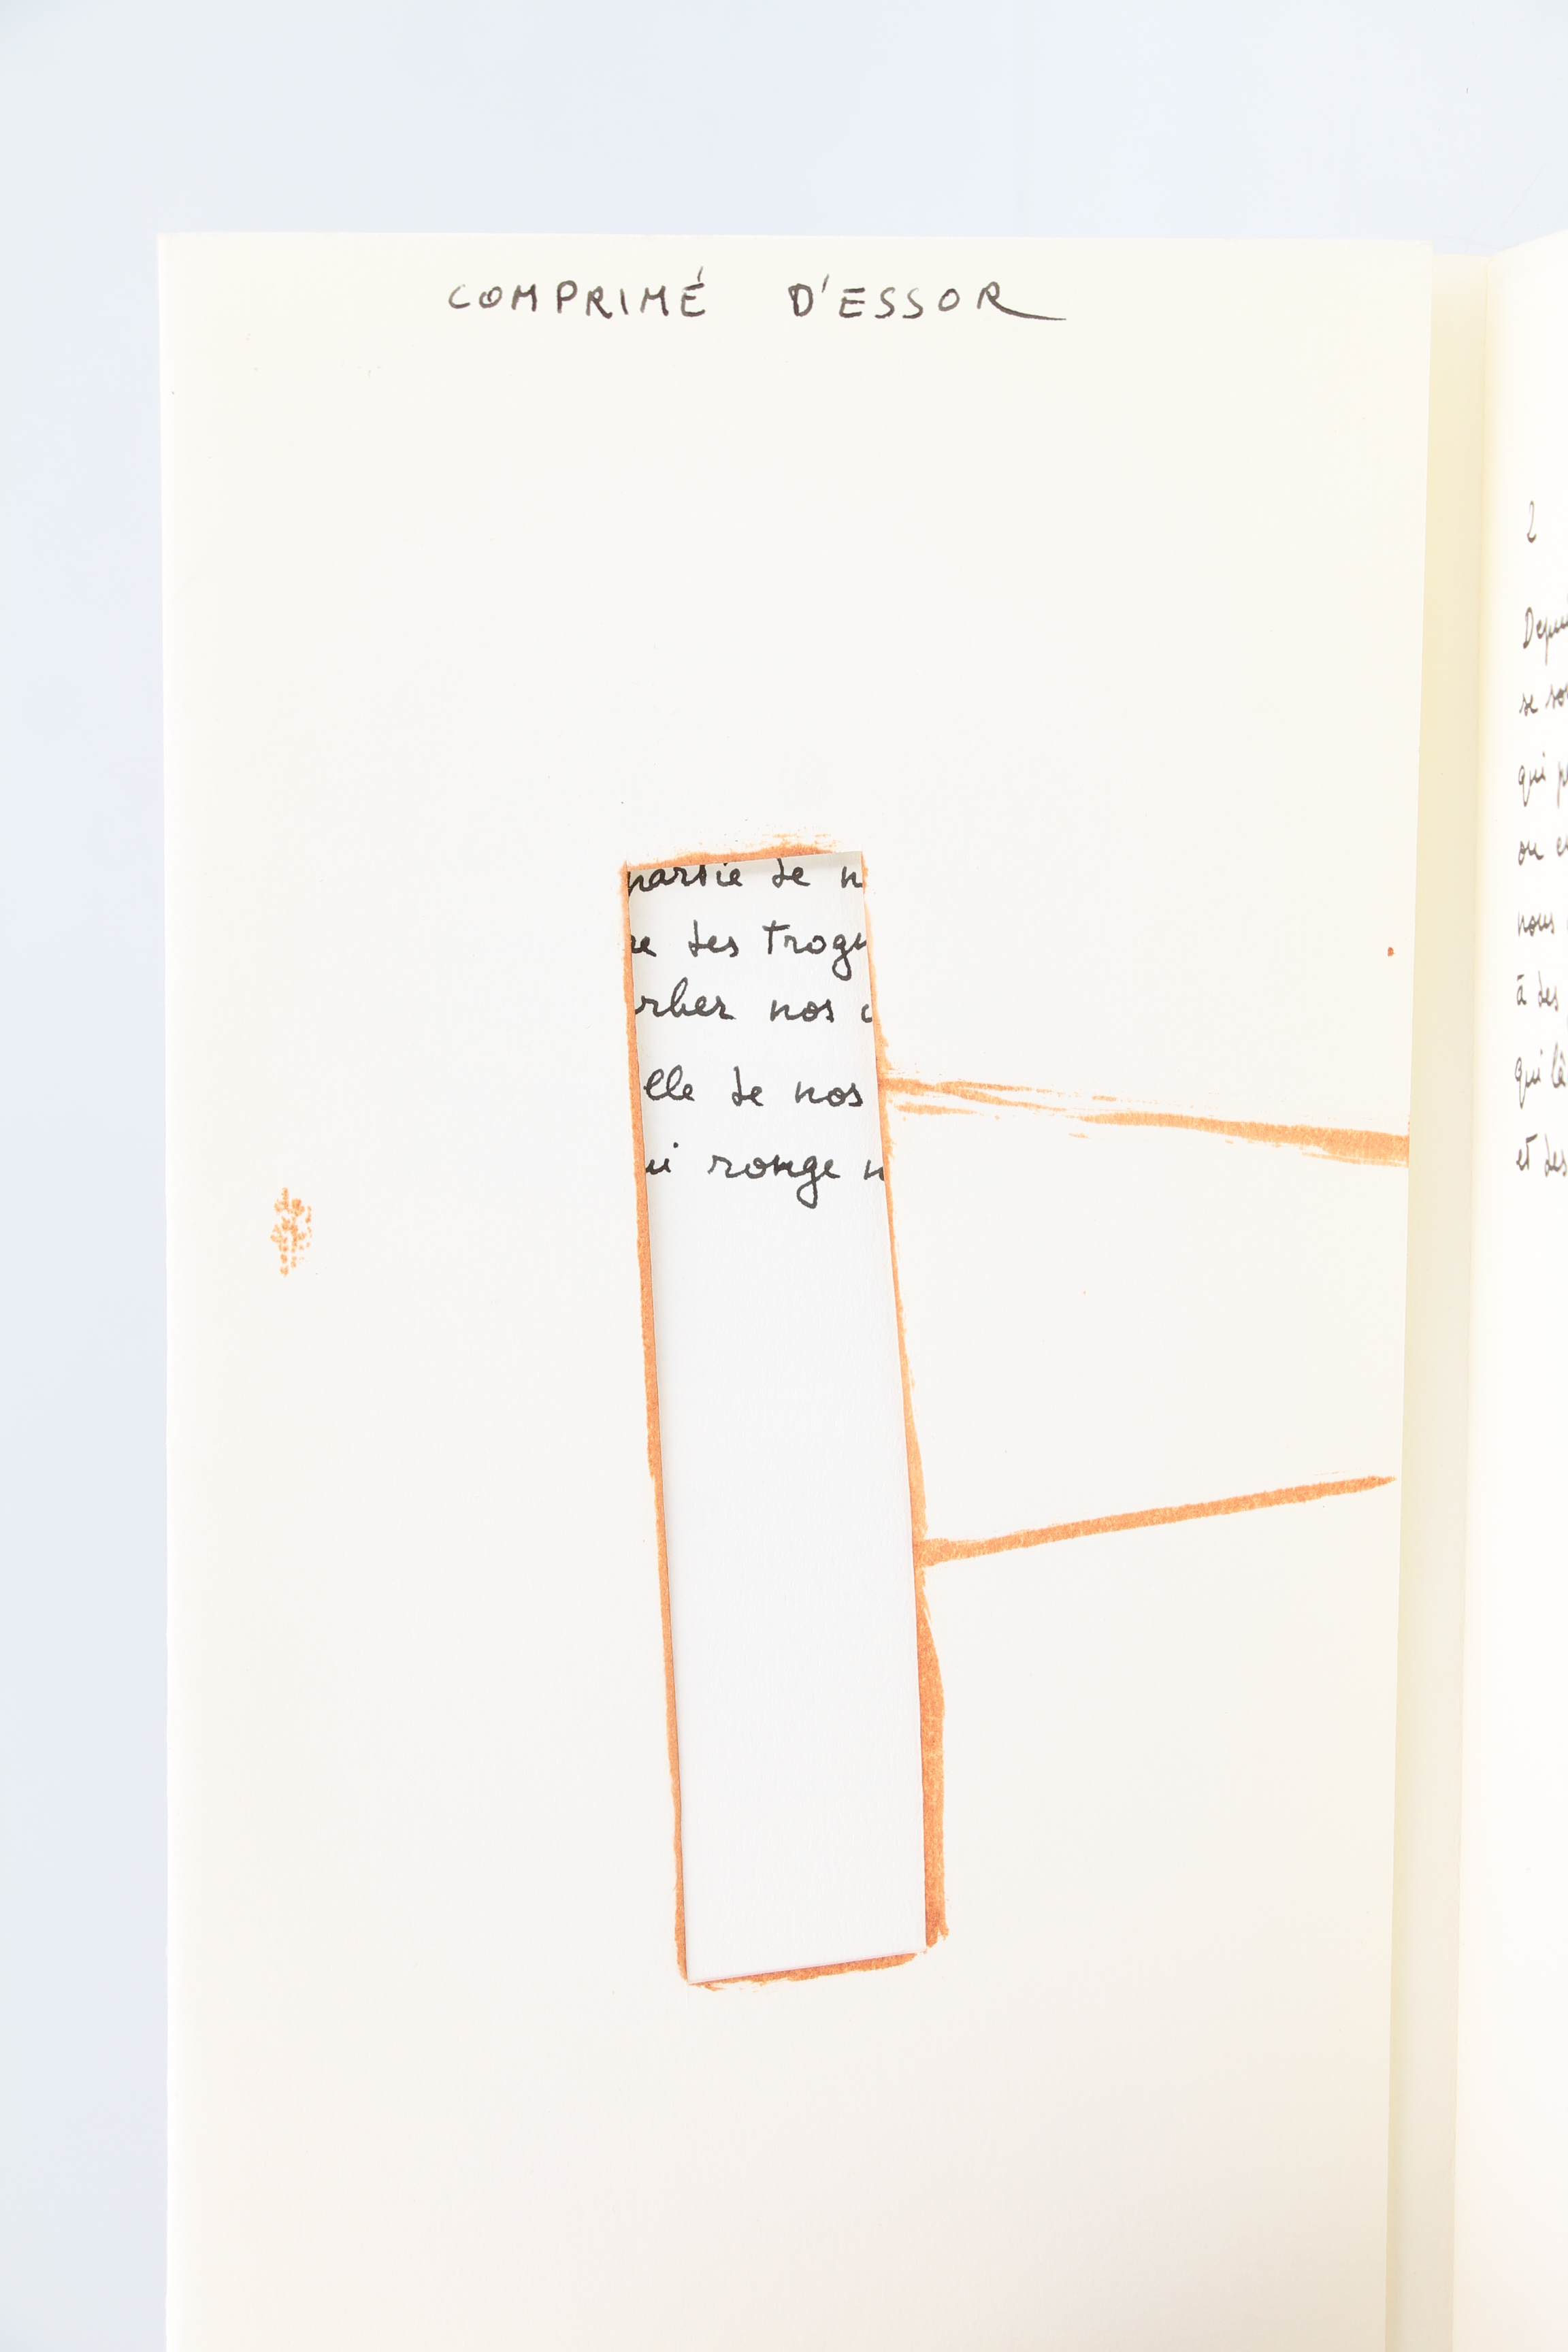 COMPRIMÉ D'ESSOR
partie de n
re des trogn
rber nos c
elle de nos
ui ronge n
2
Depui
se so
qui p
ou e
nous
à des
qui lè
et des